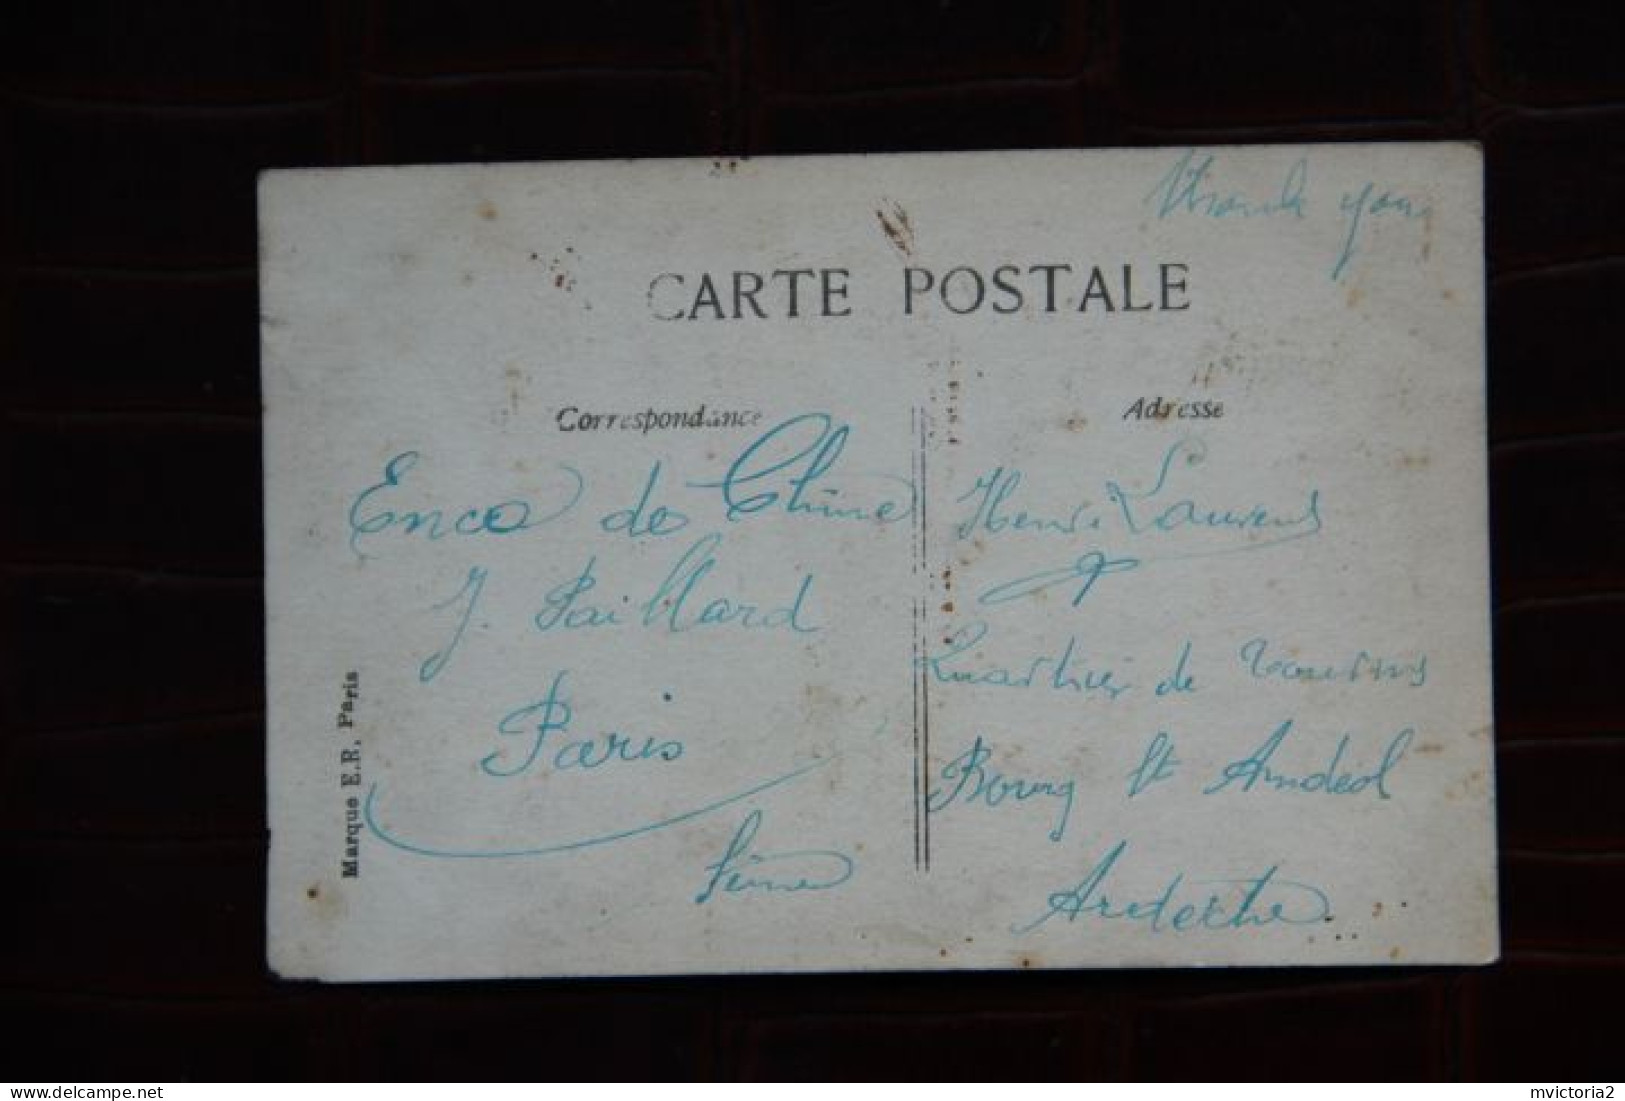 Thank you
CARTE POSTALE
Correspondance
Adresse
Enco de Chine
J. Paillard
Paris
Seine
Henri Laurens
Quartier de Tourns
Bourg St Andéol
Ardeche
Marque E.R. Paris
mvictoria2